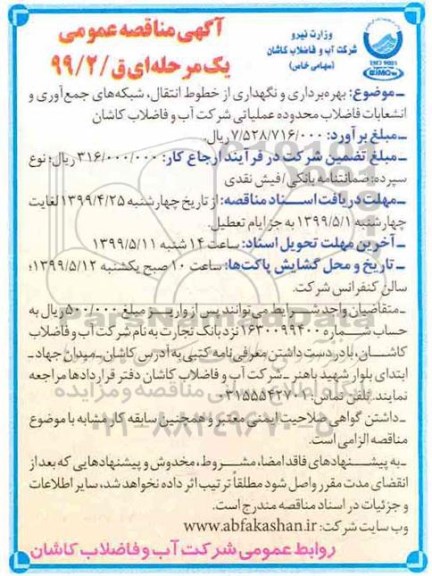 وزارت نیرو
شرکت آب و فاضلاب کاشان
(سهامی خاص)
آگهی مناقصه عمومی
یک مرحله‌ای ق/۹۹/۲
ـ موضوع: بهره‌برداری و نگهداری از خطوط انتقال، شبکه‌های جمع‌آوری و
انشعابات فاضلاب محدوده عملیاتی شرکت آب و فاضلاب کاشان
ـ مبلغ برآورد: ۷/۵۲۸/۷۱۶/۰۰۰ ریال.
ـ مبلغ تضمین شرکت در فرآیند ارجاع کار: ۳۱۶/۰۰۰/۰۰۰ ریال؛ نوع
سپرده: ضمانتنامه بانکی/فیش نقدی
ـ مهلت دریافت اسناد مناقصه: از تاریخ چهارشنبه ۱۳۹۹/۴/۲۵ لغایت
چهارشنبه ۱۳۹۹/۵/۱ به جز ایام تعطیل.
ـ آخرین مهلت تحویل اسناد: ساعت ۱۴ شنبه ۱۳۹۹/۵/۱۱
ـ تاریخ و محل گشایش پاکت‌ها: ساعت ۱۰ صبح یکشنبه ۱۳۹۹/۵/۱۲؛
سالن کنفرانس شرکت.
ـ متقاضیان واجد شرایط می‌توانند پس از واریز مبلغ ۵۰۰/۰۰۰ ریال به
حساب شماره ۱۶۳۰۰۹۹۴۰۰ نزد بانک تجارت به نام شرکت آب و فاضلاب
کاشان، با در دست داشتن معرفی‌نامه کتبی به آدرس کاشان ـ میدان جهاد ـ
ابتدای بلوار شهید باهنر ـ شرکت آب و فاضلاب کاشان دفتر قراردادها مراجعه
نمایند. تلفن تماس: ۰۳۱۵۵۵۴۲۷۰۱
ـ داشتن گواهی صلاحیت ایمنی معتبر و همچنین سابقه کار مشابه با موضوع
مناقصه الزامی است.
ـ به پیشنهادهای فاقد امضا، مشروط، مخدوش و پیشنهادهایی که بعد از
انقضای مدت مقرر واصل شود مطلقاً ترتیب اثر داده نخواهد شد، سایر اطلاعات
و جزئیات در اسناد مناقصه مندرج است.
وب سایت شرکت: www.abfakashan.ir
روابط عمومی شرکت آب و فاضلاب کاشان
۰۲۱-۸۸۳۴۹۶۷۰-۵